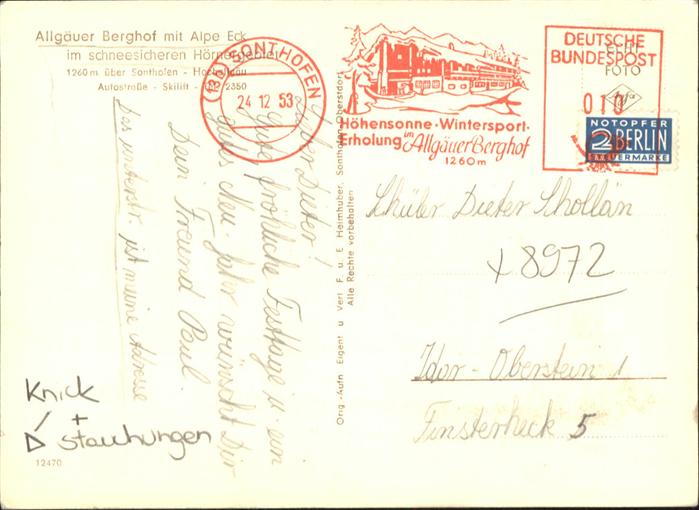 Allgäuer Berghof mit Alpe Eck
im schneesicheren Hörnergebiet
1260 m über Sonthofen - Hochallgäu
Autostraße - Skilift - 2350
SONTHOFEN
24 12 53
Höhensonne · Wintersport ·
Erholung im Allgäuer Berghof
1260 m
DEUTSCHE
BUNDESPOST
ECHT
FOTO
010
NOTOPFER
2 BERLIN
STEUERMARKE
Lieber Dieter!
Gute fröhliche Festtage u. ein
gutes Neu-Jahr wünscht Dir
Dein Freund Paul.
Das unterstr. ist meine Adresse
Orig.-Aufn Eigent u Verl F. u. E Heimhuber, Sonthofen-Oberstdorf
Alle Rechte vorbehalten
Schüler Dieter Schollän
+8972
Idar-Oberstein 1
Finsterheck 5
Knick
+
stauchungen
12470